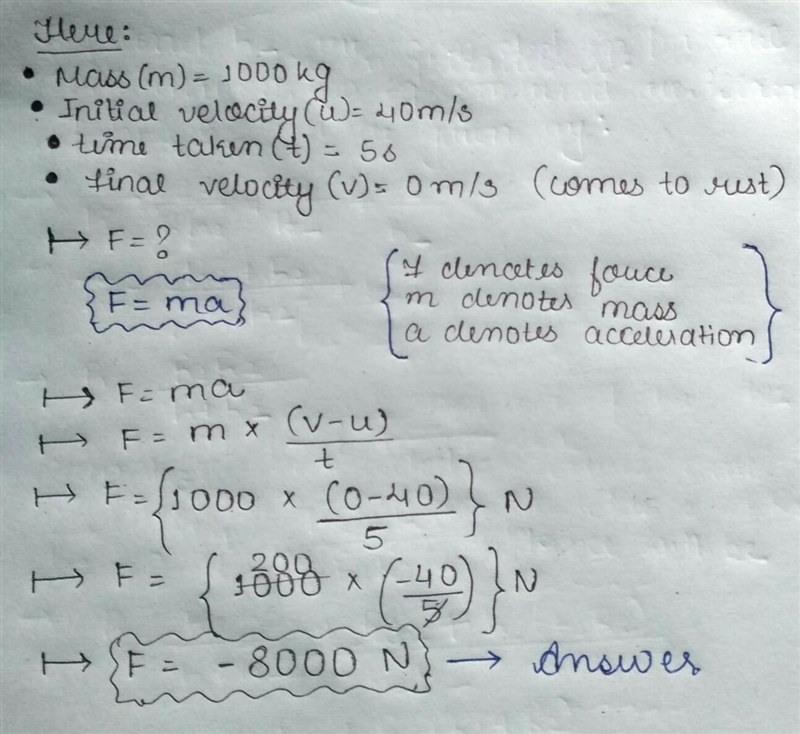 Here:
• Mass(m) = 1000 kg
• Initial velocity(u) = 40m/s
• time taken(t) = 5s
• final velocity (v) = 0 m/s (comes to rest)
↦ F = ?
F = ma
{f denotes force
m denotes mass
a denotes acceleration}
↦ F = ma
↦ F = m × (v-u)/t
↦ F = {1000 × (0-40)/5} N
200
↦ F = {1000 × (-40/5)} N
↦ {F = -8000 N} → Answer